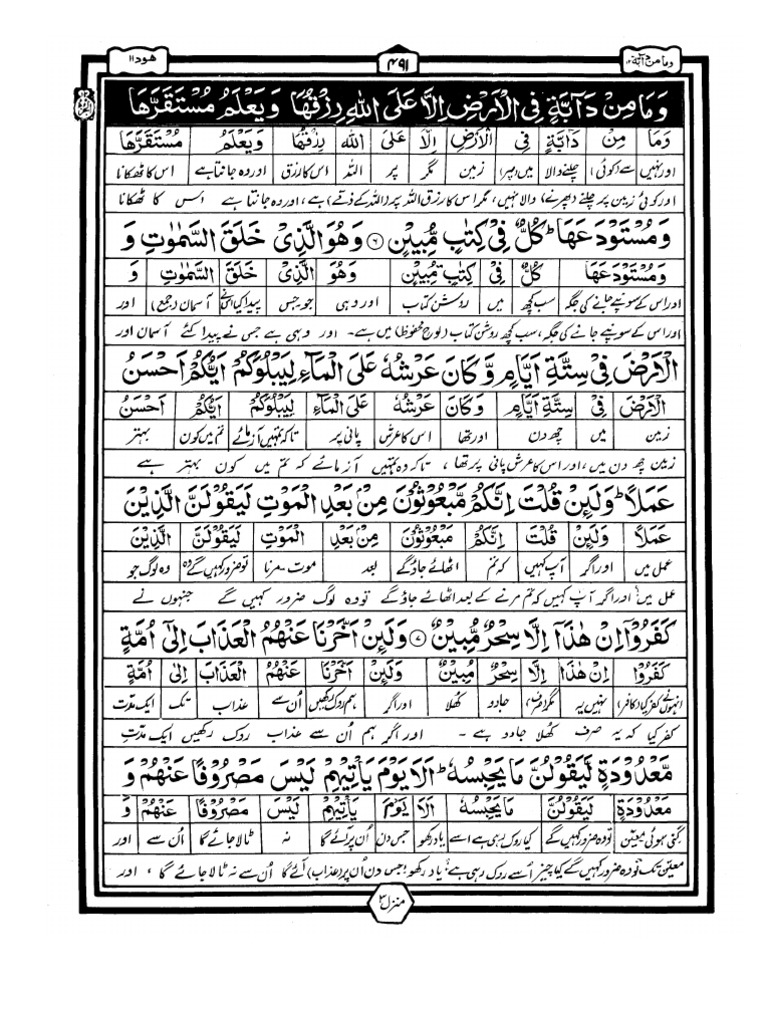 ھود ۱۱
۴۹۱
وما من دآبة ۱۲
وَمَا مِنْ دَآبَّةٍ فِى الْاَرْضِ اِلَّا عَلَى اللّٰهِ رِزْقُهَا وَيَعْلَمُ مُسْتَقَرَّهَا
وَمَا مِنْ دَآبَّةٍ فِى الْاَرْضِ اِلَّا عَلَى اللّٰهِ رِزْقُهَا وَيَعْلَمُ مُسْتَقَرَّهَا
اور نہیں سے (کوئی) چلنے والا میں (پر) زمین مگر پر اللہ اس کا رزق اور وہ جانتا ہے اس کا ٹھکانا
اور کوئی زمین پر چلنے (پھرنے) والا نہیں، مگر اس کا رزق اللہ پر (اللہ کے ذمے) ہے، اور وہ جانتا ہے اس کا ٹھکانا
وَمُسْتَوْدَعَهَا ؕ كُلٌّ فِىْ كِتٰبٍ مُّبِيْنٍ ۶ وَهُوَ الَّذِىْ خَلَقَ السَّمٰوٰتِ وَ
وَمُسْتَوْدَعَهَا كُلٌّ فِىْ كِتٰبٍ مُّبِيْنٍ وَهُوَ الَّذِىْ خَلَقَ السَّمٰوٰتِ وَ
اور اس کے سونپے جانے کی جگہ سب کچھ میں روشن کتاب اور وہی جو۔جس پیدا کیا اسنے آسمان (جمع) اور
اور اس کے سونپے جانے کی جگہ، سب کچھ روشن کتاب (لوحِ محفوظ) میں ہے۔ اور وہی ہے جس نے پیدا کئے آسمان اور
الْاَرْضَ فِىْ سِتَّةِ اَيَّامٍ وَّكَانَ عَرْشُهٗ عَلَى الْمَآءِ لِيَبْلُوَكُمْ اَيُّكُمْ اَحْسَنُ
الْاَرْضَ فِىْ سِتَّةِ اَيَّامٍ وَكَانَ عَرْشُهٗ عَلَى الْمَآءِ لِيَبْلُوَكُمْ اَيُّكُمْ اَحْسَنُ
زمین میں چھ دن اور تھا اس کا عرش پانی پر تاکہ تمہیں آزمائے تم میں کون بہتر
زمین چھ دن میں، اور اس کا عرش پانی پر تھا، تاکہ وہ تمہیں آزمائے کہ تم میں کون بہتر ہے
عَمَلًا ؕ وَلَىِٕنْ قُلْتَ اِنَّكُمْ مَّبْعُوْثُوْنَ مِنْۢ بَعْدِ الْمَوْتِ لَيَقُوْلَنَّ الَّذِيْنَ
عَمَلًا وَلَىِٕنْ قُلْتَ اِنَّكُمْ مَبْعُوْثُوْنَ مِنْۢ بَعْدِ الْمَوْتِ لَيَقُوْلَنَّ الَّذِيْنَ
عمل میں اور اگر آپ کہیں کہ تم اٹھائے جاؤگے بعد موت۔مرنا تو ضرور کہیں گے وہ وہ لوگ جو
عمل میں اور اگر آپ کہیں کہ تم مرنے کے بعد اٹھائے جاؤگے تو وہ لوگ ضرور کہیں گے جنہوں نے
كَفَرُوْٓا اِنْ هٰذَآ اِلَّا سِحْرٌ مُّبِيْنٌ ۷ وَلَىِٕنْ اَخَّرْنَا عَنْهُمُ الْعَذَابَ اِلٰٓى اُمَّةٍ
كَفَرُوْا اِنْ هٰذَا اِلَّا سِحْرٌ مُبِيْنٌ وَلَىِٕنْ اَخَّرْنَا عَنْهُمُ الْعَذَابَ اِلٰى اُمَّةٍ
انہوں نے کفر کیا (کافر) نہیں یہ مگر (صرف) جادو کھلا اور اگر ہم روک رکھیں اُن سے عذاب تک ایک مدت
کفر کیا کہ یہ صرف کھلا جادو ہے۔ اور اگر ہم اُن سے عذاب روک رکھیں ایک مدتِ
مَّعْدُوْدَةٍ لَّيَقُوْلُنَّ مَا يَحْبِسُهٗ ؕ اَلَا يَوْمَ يَاْتِيْهِمْ لَيْسَ مَصْرُوْفًا عَنْهُمْ وَ
مَعْدُوْدَةٍ لَيَقُوْلُنَّ مَا يَحْبِسُهٗ اَلَا يَوْمَ يَاْتِيْهِمْ لَيْسَ مَصْرُوْفًا عَنْهُمْ وَ
گنی ہوئی معیّن تو وہ ضرور کہیں گے کیا روک رہی ہے اسے یاد رکھو جس دن اُن پر آئے گا نہ ٹالا جائے گا اُن سے اور
معیّن تک تو وہ ضرور کہیں گے کیا چیز اُسے روک رہی ہے؛ یاد رکھو! جس دن اُن پر (عذاب) آئے گا اُن سے نہ ٹالا جائے گا، اور
منزل ۳